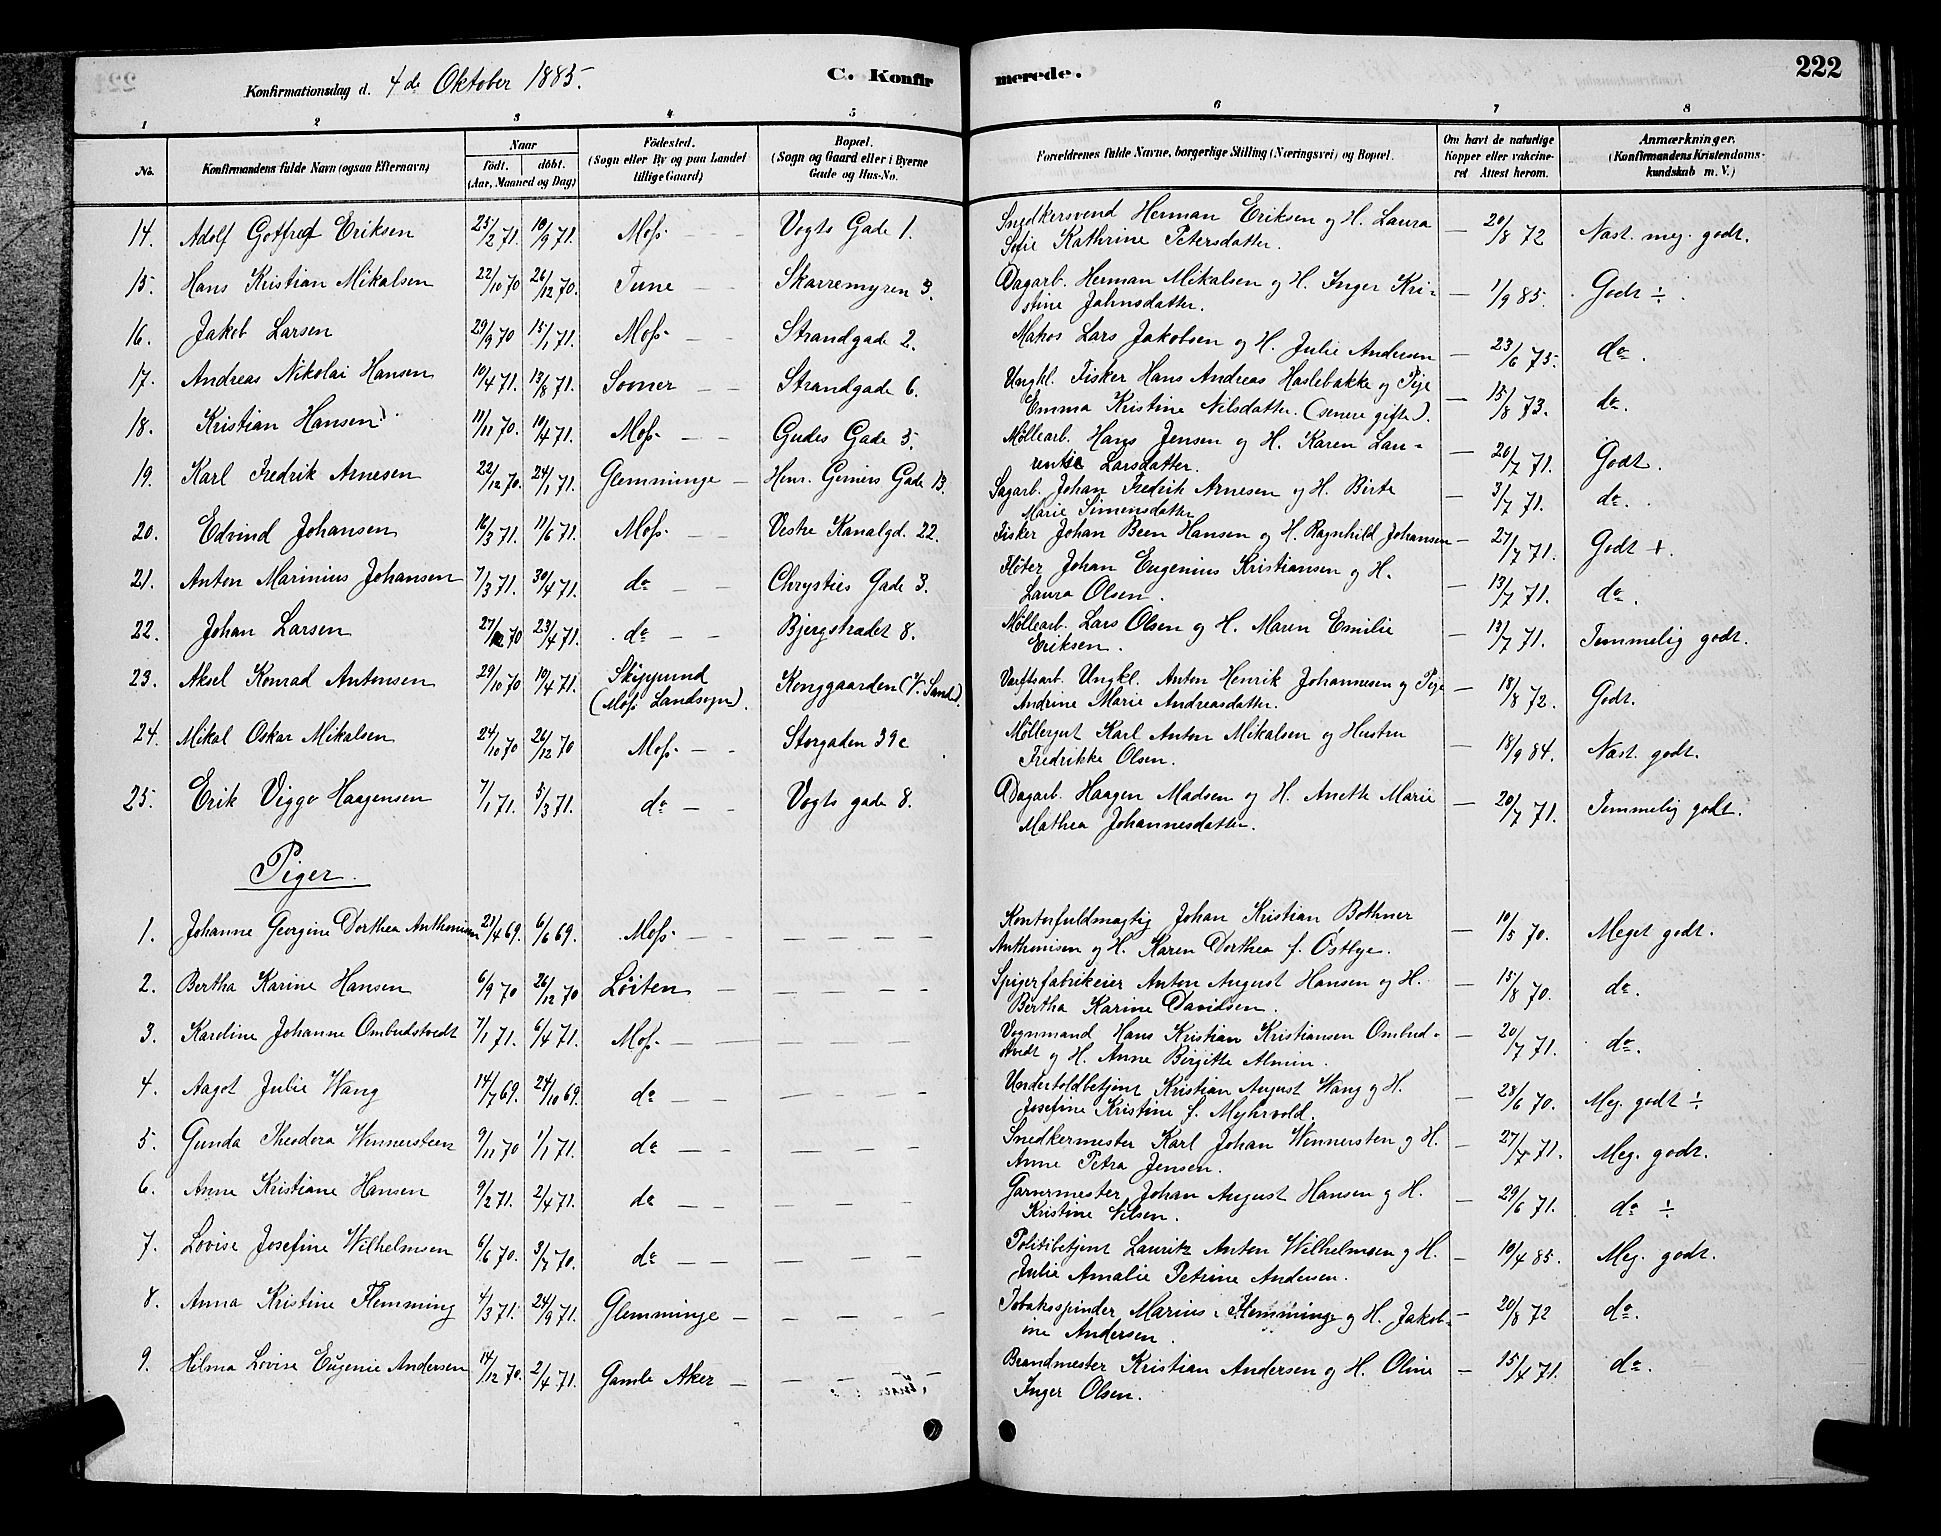 Konfirmationsdag d. 4de Oktober 1885.
C. Konfirmerede.
222
1 2 3 4 5 6 7 8
No.
Konfirmandens fulde Navn (ogsaa Efternavn)
Naar
født. døbt.
(Aar, Maaned og Dag)
Fødested.
(Sogn eller By og paa Landet
tillige Gaard)
Bopæl.
(Sogn og Gaard eller i Byerne
Gade og Hus-No.
Forældrenes fulde Navne, borgerlige Stilling (Næringsvei) og Bopæl.
Om havt de naturlige
Kopper eller vakcine-
ret Attest herom.
Anmærkninger.
(Konfirmandens Kristendoms-
kundskab m. V.)
14. Adolf Gotfred Eriksen 25/2 71. 10/9 71. Moss — Vogts Gade 1. Snedkersvend Herman Eriksen og H. Laura — 20/8 72 Nast. meg. godt.
Sofie Kathrine Petersdatter.
15. Hans Kristian Mikalsen 22/10 70 26/12 70. Tune — — Skarremyren 3. Dagarb. Herman Mikalsen og H. Inger Kri- — 1/9 85. Godt ÷.
stine Jahnsdatter.
16. Jakob Larsen 29/9 70 15/1 71. Moss — — Strandgade 2. Matros Lars Jakobsen og H. Julie Andersen — 23/6 75. do.
17. Andreas Nikolai Hansen 10/4 71. 13/8 71. Soner — — Strandgade 6. Ungkl. Fisker Hans Andreas Haslebakke og Pige — 15/8 73. do.
Emma Kristine Nilsdatter. (senere gifte).
18. Kristian Hansen 11/11 70. 10/4 71. Moss — — Gudes Gade 5. Møllearb. Hans Jensen og H. Karen Lau- — 20/7 71. Godt.
rentze Larsdatter.
19. Karl Fredrik Arnesen 22/12 70. 24/1 71. Glemminge — Henr. Gerners Gade 13. Sagarb. Johan Fredrik Arnesen og H. Birte — 3/7 71. do.
Marie Simensdatter
20. Edvind Johansen 16/3 71. 11/6 71. Moss — — Vestre Kanalgd. 22. Fisker Johan Been Hansen og H. Ragnhild Johansen — 27/7 71. Godt +.
21. Anton Marinius Johansen 7/3 71. 30/4 71. do — — Chrysties Gade 3. Fløter Johan Eugenius Kristiansen og H. — 13/7 71. do.
Laura Olsen.
22. Johan Larsen 27/12 70 23/4 71. do — — Bjergstrædet 8. Møllearb. Lars Olsen og H. Maren Emilie — 13/7 71. Temmelig godt.
Eriksen.
23. Aksel Konrad Antonsen 29/10 70 10/4 71. Skippund Konggaarden (V. Sand). Værftsarb. Ungkl. Anton Henrik Johannesen og Pige — 18/8 72. Godt.
(Moss Landsogn). Andrine Marie Andreasdatter.
24. Mikal Oskar Mikalsen 24/10 70 26/12 70 Moss — — Storgaden 39c Møllergut Karl Anton Mikalsen og Hustru — 18/9 84. Nast. godt.
Fredrikke Olsen.
25. Erik Viggo Haagensen 7/1 71. 5/3 71. do — — Vogts gade 8. Dagarb. Haagen Madsen og H. Anette Marie — 20/7 71. Temmelig godt.
Mathea Johannesdatter.
Piger.
1. Johanne Georgine Dorthea Anthonisen 21/4 69. 6/6 69. Moss — — — — Kontorfuldmægtig Johan Kristian Bothner — 10/5 70. Meget godt.
Anthonisen og H. Karen Dorthea f. Østbye.
2. Bertha Karine Hansen 6/9 70 26/12 70 Løiten — — — — Spigerfabrikeier Anton August Hansen og H. — 15/8 70. do.
Bertha Karine Davidsen.
3. Karoline Johanne Ombudstvedt 7/1 71. 6/4 71. Moss — — — — Vognmand Hans Kristian Kristiansen Ombud- — 20/7 71. do.
stvedt og H. Anne Birgitte Almin.
4. Aagot Julie Wang 14/7 69. 24/10 69. do — — — — Undertoldbetjent Kristian August Wang og H. — 28/6 70. Meg. godt ÷
Josefine Kristine f. Myhrvold.
5. Gunda Theodora Wennersteen 9/11 70 1/1 71. do — — — — Snedkermester Karl Johan Wennersten og H. — 27/7 71. Meg. godt.
Anne Petra Jensen.
6. Anne Kristiane Hansen 9/2 71. 2/4 71. do — — — — Garvermester Johan August Hansen og H. — 29/6 71. do ÷
Kristine Nilsen.
7. Lovise Josefine Wilhelmsen 6/6 70. 3/7 70. do — — — — Politibetjent Lauritz Anton Wilhelmsen og H. — 10/4 85. Meg. godt.
Julie Amalie Petrine Andersen.
8. Anna Kristine Flemming 4/3 71. 24/9 71. Glemminge — — — — Tobaksspinder Marius Flemming og H. Jakob- — 20/8 72 do.
ine Andersen.
9. Hilma Lovise Eugenie Andersen 14/12 70. 2/4 71. Gamle Aker — — — — Brandmester Kristian Andersen og H. Oline — 15/4 71. do.
Inger Olsen.